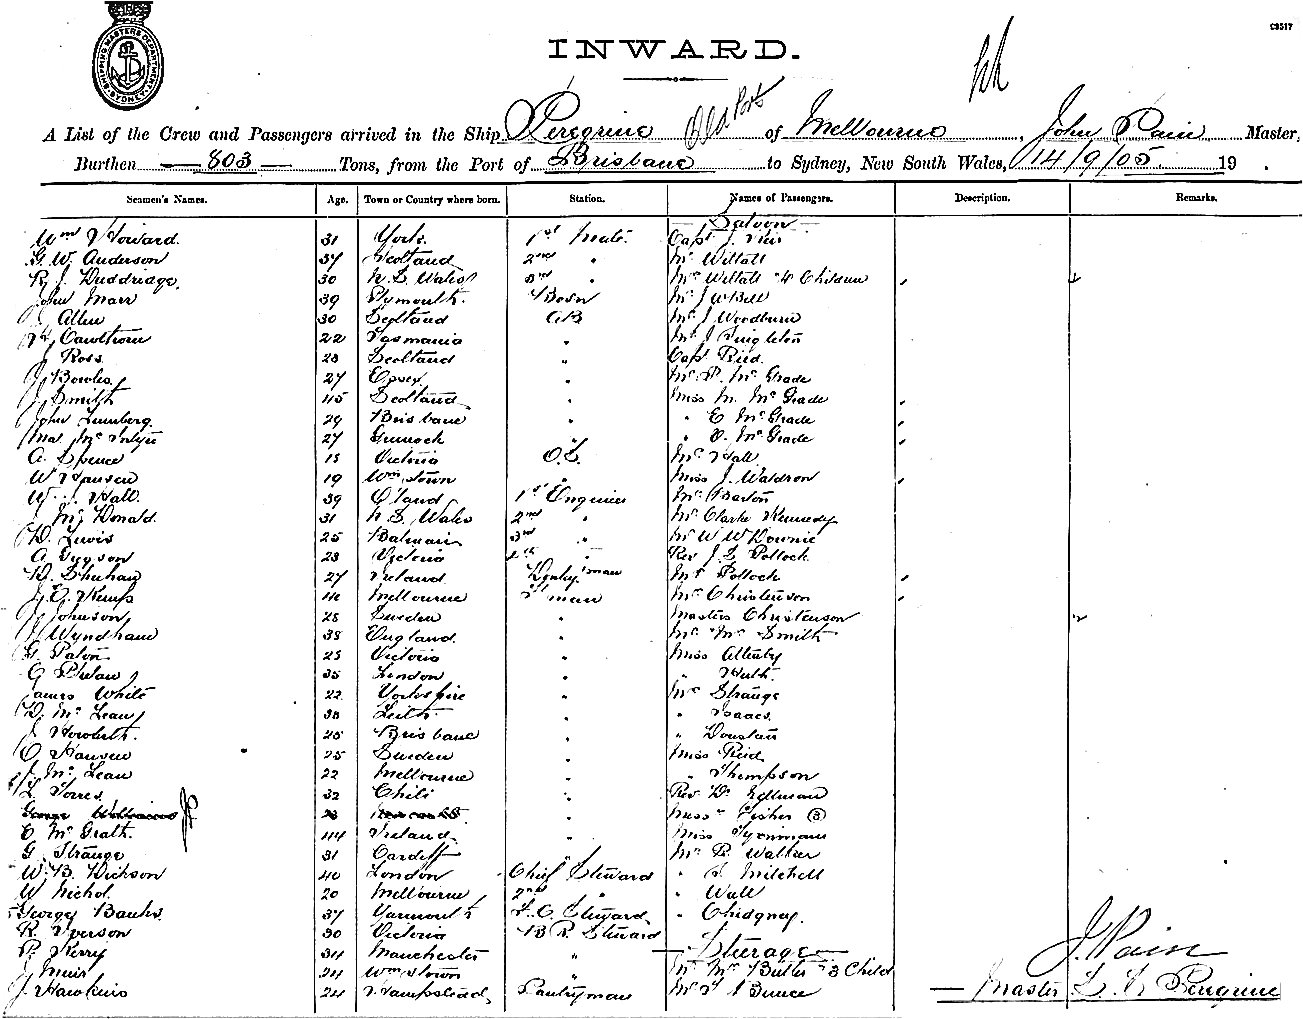 C3517
SHIPPING MASTERS DEPARTMENT SYDNEY
INWARD.
A List of the Crew and Passengers arrived in the Ship Peregrine of Melbourne, John Pain Master,
Burthen 803 Tons, from the Port of Brisbane to Sydney, New South Wales, 14/9/05 19 .
Seamen's Names. Age. Town or Country where born. Station. Names of Passengers. Description. Remarks.
Saloon
Wm Howard. 31 York. 1st Mate. Capt J.
G. W. Anderson 37 Scotland 2nd " Mr Wittall
R J. Duddridge 30 N. S. Wales 3rd " Mrs Wittall & 4 Children
John Marr 39 Plymouth Bosn Mr J W Bell
J Allen 30 Scotland AB Mr J Woodburn
Cawthorn 22 Tasmania " Mr J Singleton
J Ross 23 Scotland " Capt Reid
J Bowles 27 Essex " Mr P. McGrade
J Smith 45 Scotland " Miss M. McGrade
John Lumberg 29 Brisbane " " E McGrade
27 Greenock " " McGrade
A. Spence 18 Victoria O.S. Mr Hall
W Hansen 19 Wmstown Miss J. Waldron
W. J Hall 39 1st Engineer Mr Barton
McDonald 31 N S. Wales 2nd " Mr Clarke Kennedy
D. Lewis 25 Balmain 3rd " Mr W W Downie
A 23 Victoria 4th " Rev J. S. Pollock
D. Shehan 27 Ireland Donkyman Mrs Pollock
J. E. Kemp 40 Melbourne Fman Mrs Christenson
J Johnson 28 Sweden " Masters Christenson
Wyndham 38 England " Mr & Mrs Smith
G. Paton 25 Victoria " Miss Allenby
35 London " "
James White 22 Yorkshire " Mr Strange
D. McLean 38 Leith " " Isaacs
J Howorth 25 Brisbane " " Dunstan
O Hansen 25 Sweden " Miss Reid
J. McLean 22 Melbourne " " Thompson
L Torres 32 Chili " Rev Dr
George " Misses Fisher (3)
E McGrath 44 Ireland " Miss
G. Strange 31 Cardiff " Mr R. Walker
W. B. Dickson 40 London Chief Steward " Mitchell
W Nichol 20 Melbourne 2nd " " Wall
George Banks 37 Yarmouth F. C. Steward " Chidgney
R Iverson 30 Victoria B R. Steward
P. Kerry 34 Manchester " Steerage
J Muir 24 Wmstown " Mr & Mrs Butler & 3 Child
J. Hawkins 24 Hampstead Pantryman Mr Bunce
J. Pain
Master S. S. Peregrine